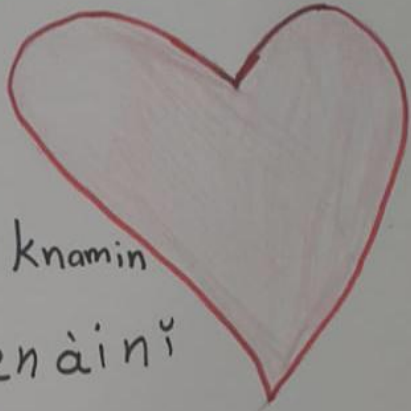 knamin
enàinǐ